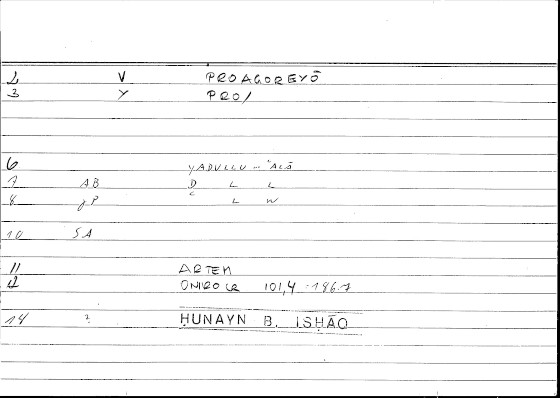 2 V PROAGOREYŌ
3 Y PRO/
6 YADULLU ... ʿALĀ
7 AB D L L
8 gP L W
10 SA
11 ARTEM
12 ONIROCR 101,4 - 186.7
14 ? ḤUNAYN B. ISḤĀQ